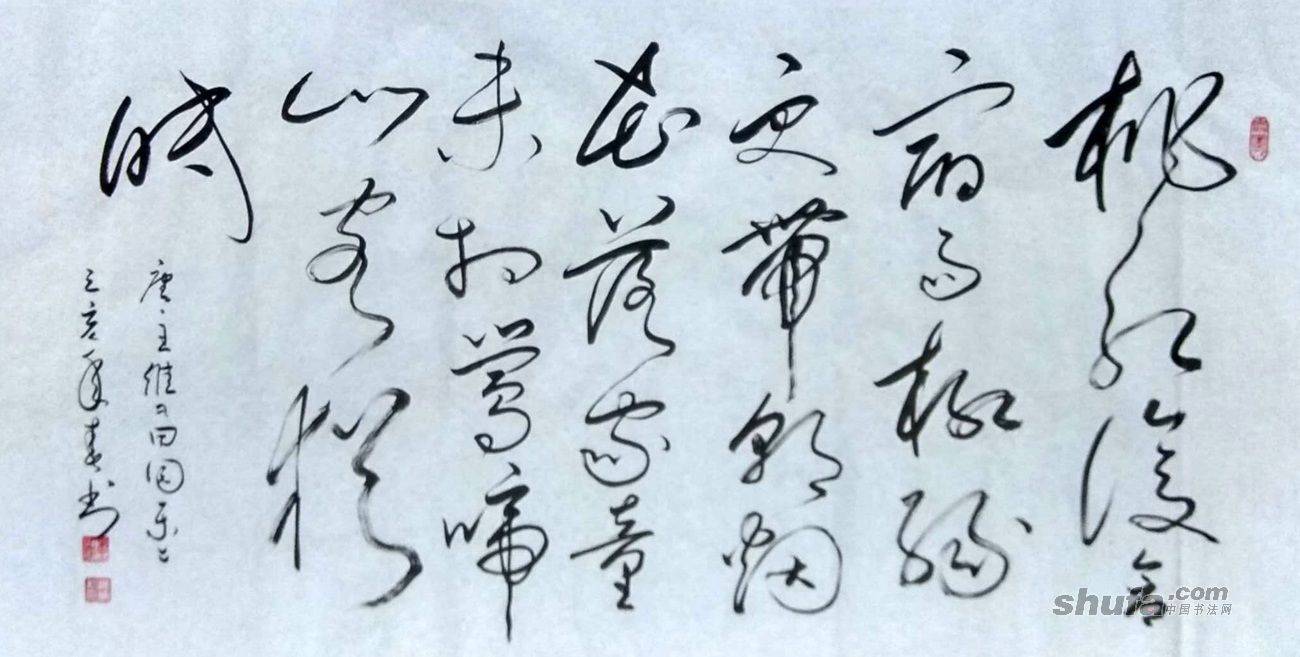 桃红復含
宿雨柳绿
更帶朝烟
花落家童
未扫莺啼
山客猶
眠
唐·王維田园乐
己亥年春书
shufa.com
中国书法网